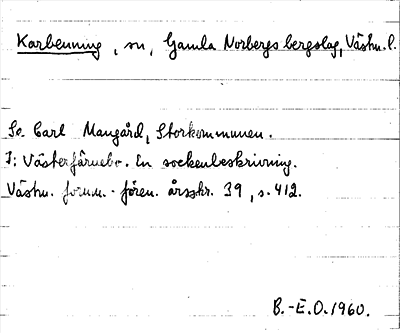 Karbenning, sn, Gamla Norbergs bergslag, Västm. l.
Se Carl Mangård, Storkommunen.
I: Västerfärnebo. En sockenbeskrivning.
Västm. fornm.-fören. årsskr. 39, s. 412.
B.-E.O. 1960.